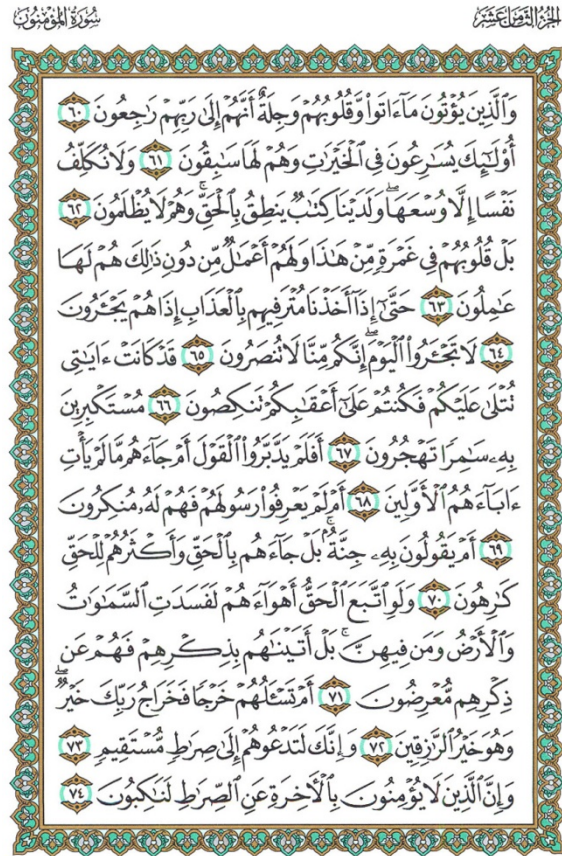 الجزء الثامن عشر
سورة المؤمنون
وَالَّذِينَ يُؤْتُونَ مَآ ءَاتَوا۟ وَّقُلُوبُهُمْ وَجِلَةٌ أَنَّهُمْ إِلَىٰ رَبِّهِمْ رَٰجِعُونَ ٦٠
أُو۟لَٰٓئِكَ يُسَٰرِعُونَ فِى ٱلْخَيْرَٰتِ وَهُمْ لَهَا سَٰبِقُونَ ٦١ وَلَا نُكَلِّفُ
نَفْسًا إِلَّا وُسْعَهَا ۖ وَلَدَيْنَا كِتَٰبٌ يَنطِقُ بِٱلْحَقِّ ۚ وَهُمْ لَا يُظْلَمُونَ ٦٢
بَلْ قُلُوبُهُمْ فِى غَمْرَةٍ مِّنْ هَٰذَا وَلَهُمْ أَعْمَٰلٌ مِّن دُونِ ذَٰلِكَ هُمْ لَهَا
عَٰمِلُونَ ٦٣ حَتَّىٰٓ إِذَآ أَخَذْنَا مُتْرَفِيهِم بِٱلْعَذَابِ إِذَا هُمْ يَجْـَٔرُونَ
٦٤ لَا تَجْـَٔرُوا۟ ٱلْيَوْمَ ۖ إِنَّكُم مِّنَّا لَا تُنصَرُونَ ٦٥ قَدْ كَانَتْ ءَايَٰتِى
تُتْلَىٰ عَلَيْكُمْ فَكُنتُمْ عَلَىٰٓ أَعْقَٰبِكُمْ تَنكِصُونَ ٦٦ مُسْتَكْبِرِينَ
بِهِۦ سَٰمِرًا تَهْجُرُونَ ٦٧ أَفَلَمْ يَدَّبَّرُوا۟ ٱلْقَوْلَ أَمْ جَآءَهُم مَّا لَمْ يَأْتِ
ءَابَآءَهُمُ ٱلْأَوَّلِينَ ٦٨ أَمْ لَمْ يَعْرِفُوا۟ رَسُولَهُمْ فَهُمْ لَهُۥ مُنكِرُونَ
٦٩ أَمْ يَقُولُونَ بِهِۦ جِنَّةٌۢ ۚ بَلْ جَآءَهُم بِٱلْحَقِّ وَأَكْثَرُهُمْ لِلْحَقِّ
كَٰرِهُونَ ٧٠ وَلَوِ ٱتَّبَعَ ٱلْحَقُّ أَهْوَآءَهُمْ لَفَسَدَتِ ٱلسَّمَٰوَٰتُ
وَٱلْأَرْضُ وَمَن فِيهِنَّ ۚ بَلْ أَتَيْنَٰهُم بِذِكْرِهِمْ فَهُمْ عَن
ذِكْرِهِم مُّعْرِضُونَ ٧١ أَمْ تَسْـَٔلُهُمْ خَرْجًا فَخَرَاجُ رَبِّكَ خَيْرٌ ۖ
وَهُوَ خَيْرُ ٱلرَّٰزِقِينَ ٧٢ وَإِنَّكَ لَتَدْعُوهُمْ إِلَىٰ صِرَٰطٍ مُّسْتَقِيمٍ ٧٣
وَإِنَّ ٱلَّذِينَ لَا يُؤْمِنُونَ بِٱلْءَاخِرَةِ عَنِ ٱلصِّرَٰطِ لَنَٰكِبُونَ ٧٤